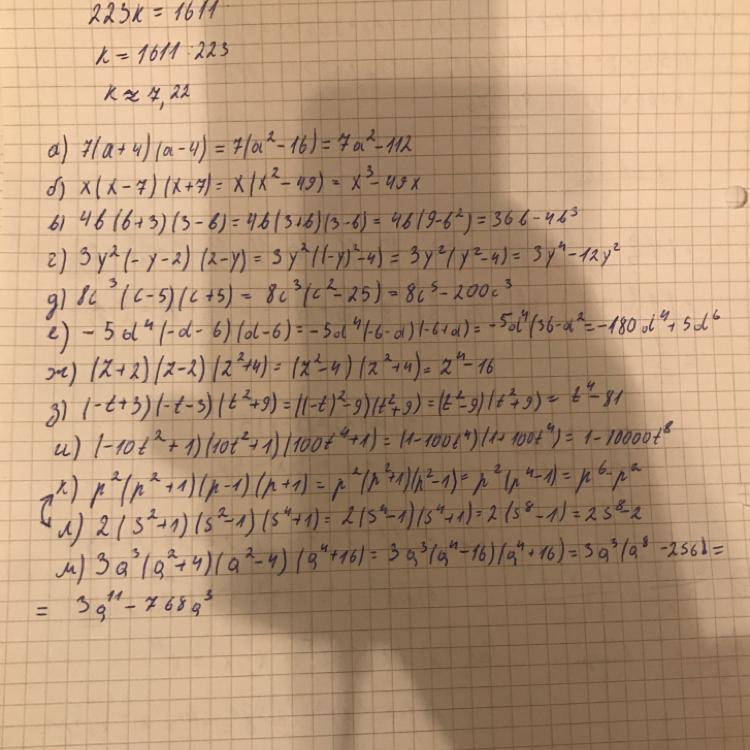 223k = 1611
k = 1611 : 223
k ≈ 7,22
а) 7(a+4)(a-4) = 7(a²-16) = 7a²-112
б) x(x-7)(x+7) = x(x²-49) = x³-49x
в) 4b(b+3)(3-b) = 4b(3+b)(3-b) = 4b(9-b²) = 36b-4b³
г) 3y²(-y-2)(2-y) = 3y²((-y)²-4) = 3y²(y²-4) = 3y⁴-12y²
д) 8c³(c-5)(c+5) = 8c³(c²-25) = 8c⁵-200c³
е) -5d⁴(-d-6)(d-6) = -5d⁴(-6-d)(-6+d) = -5d⁴(36-d² = -180d⁴+5d⁶
ж) (z+2)(z-2)(z²+4) = (z²-4)(z²+4) = z⁴-16
з) (-t+3)(-t-3)(t²+9) = ((-t)²-9)(t²+9) = (t²-9)(t²+9) = t⁴-81
и) (-10t²+1)(10t²+1)(100t⁴+1) = (1-100t⁴)(1+100t⁴) = 1-10000t⁸
к) p²(p²+1)(p-1)(p+1) = p²(p²+1)(p²-1) = p²(p⁴-1) = p⁶-p²
л) 2(s²+1)(s²-1)(s⁴+1) = 2(s⁴-1)(s⁴+1) = 2(s⁸-1) = 2s⁸-2
м) 3q³(q²+4)(q²-4)(q⁴+16) = 3q³(q⁴-16)(q⁴+16) = 3q³(q⁸-256) =
= 3q¹¹-768q³